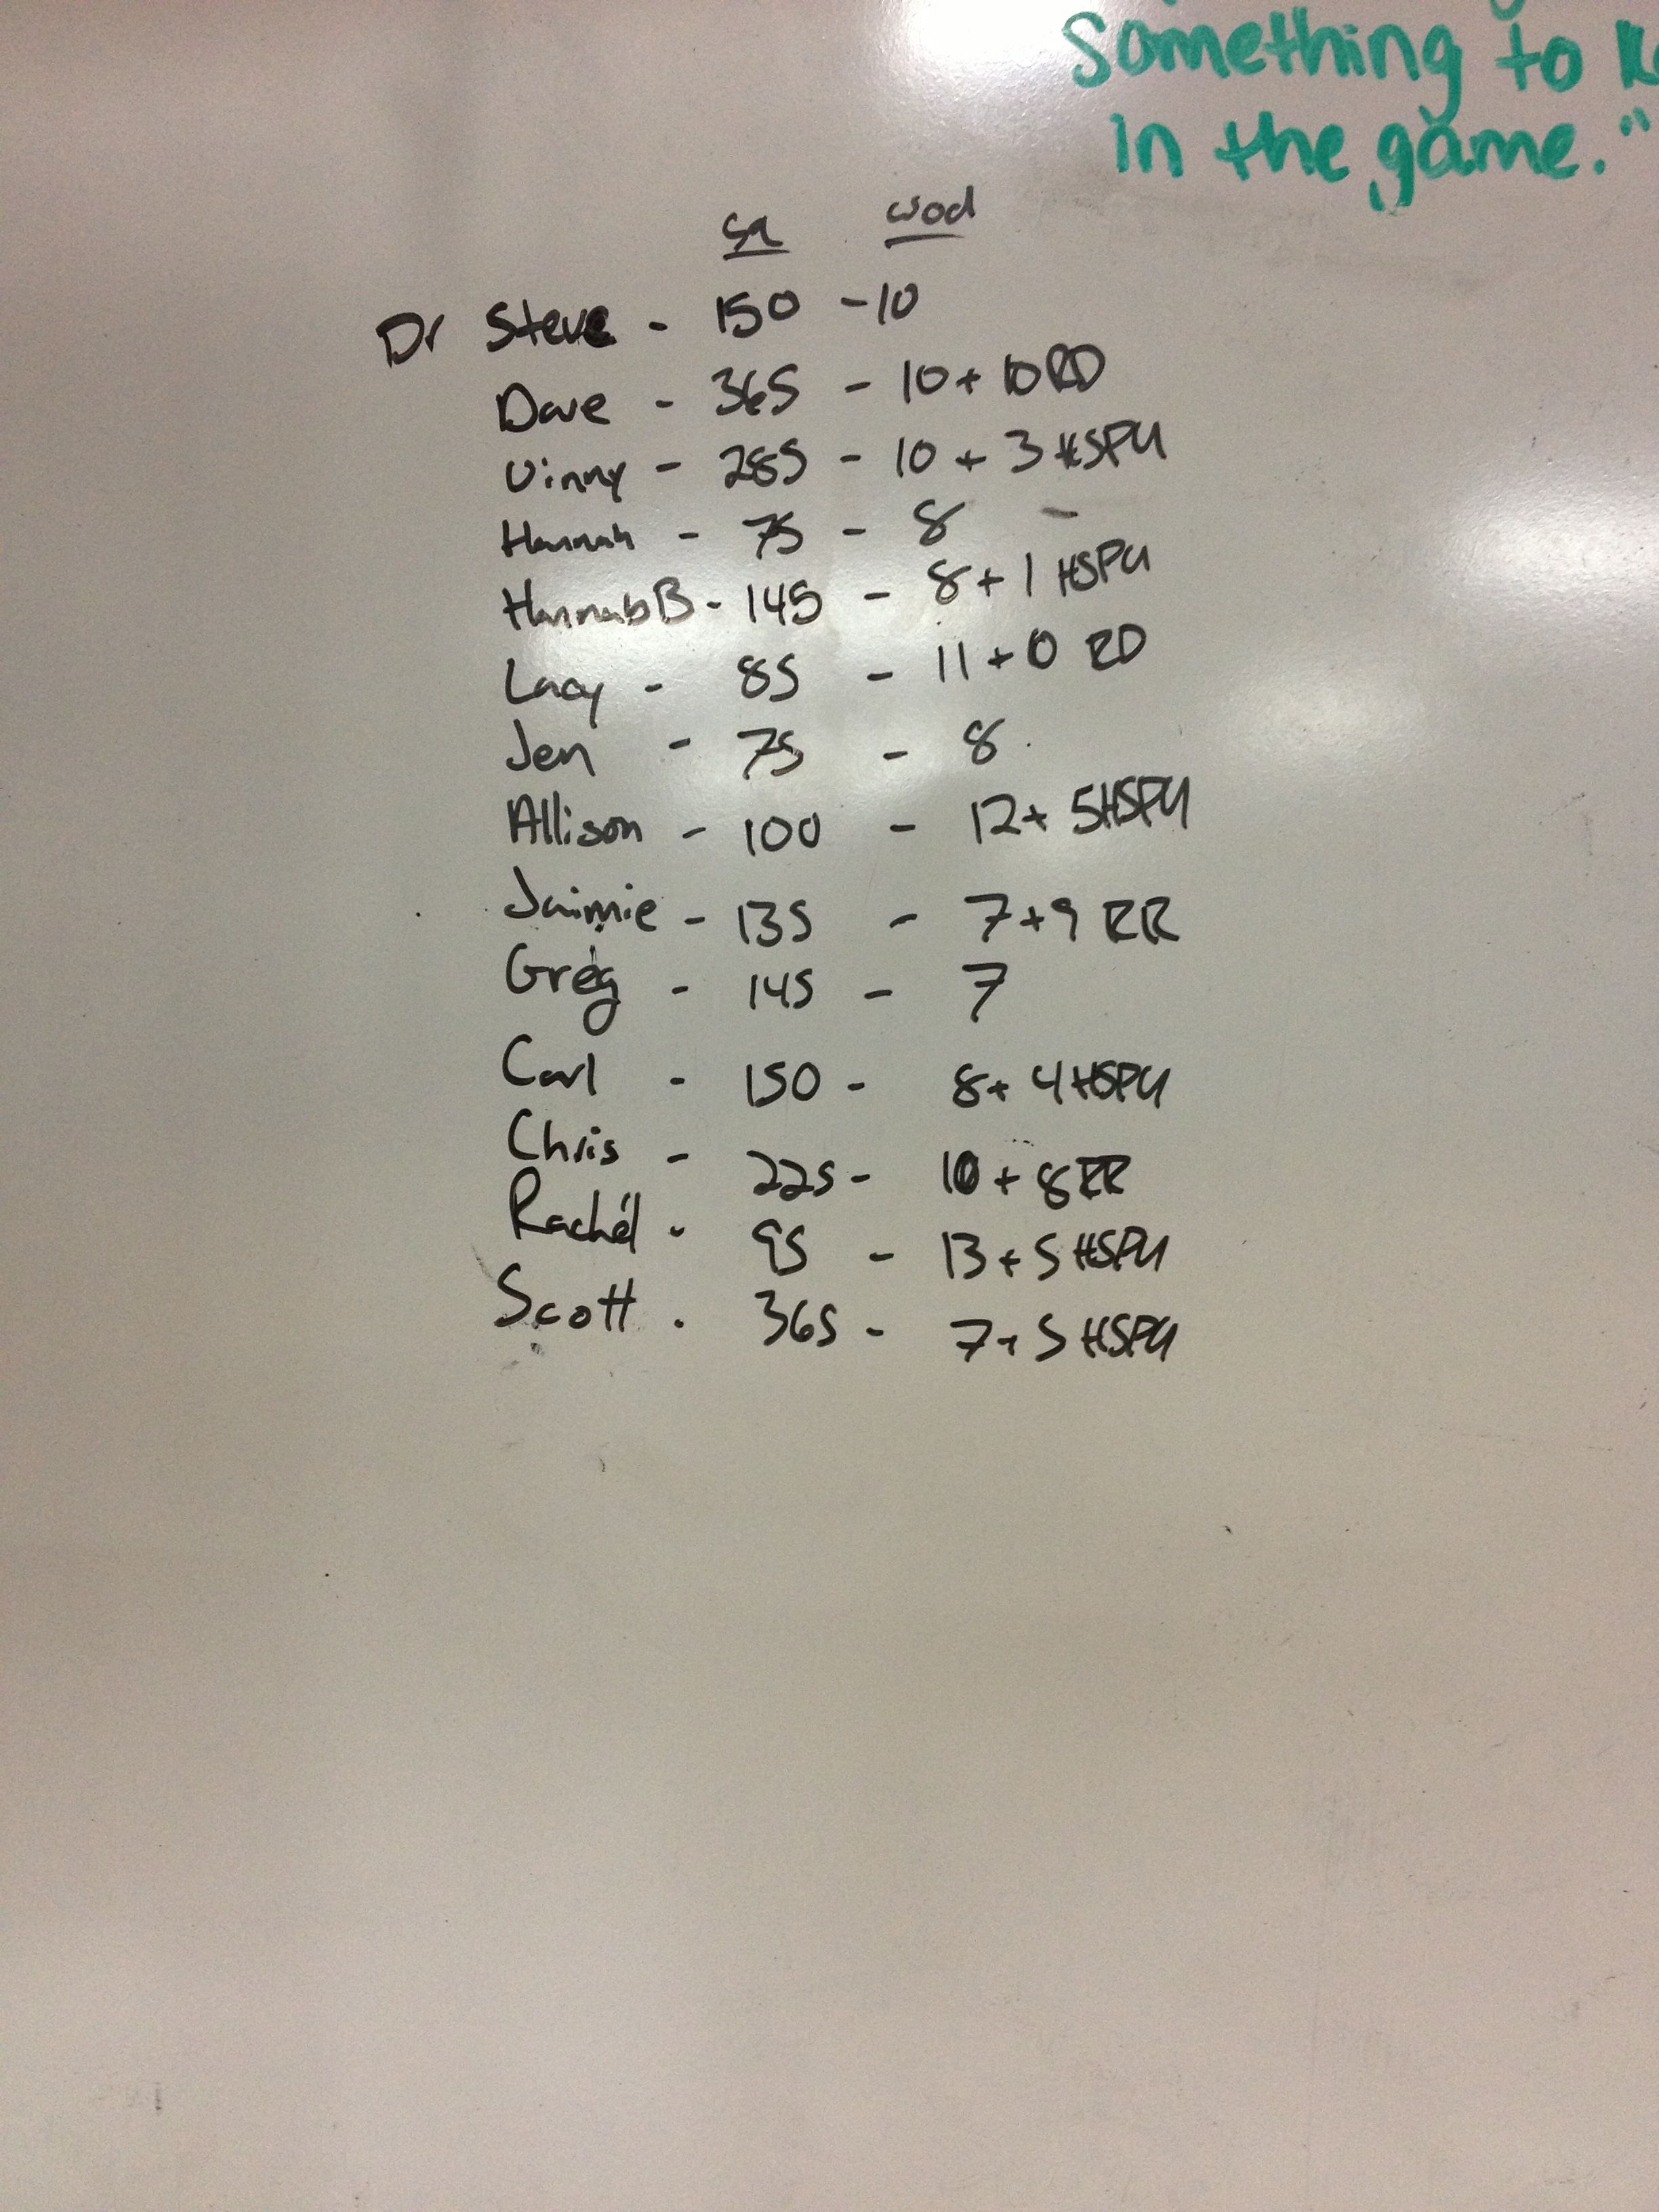 Something to
in the game."
Sq wod
Dr Steve - 150 - 10
Dave - 365 - 10 + 10 RD
Vinny - 285 - 10 + 3 HSPU
Hannah - 75 - 8
Hannah B - 145 - 8 + 1 HSPU
Lacy - 85 - 11 + 0 RD
Jen - 75 - 8
Allison - 100 - 12 + 5 HSPU
Jaimie - 135 - 7 + 9 RR
Greg - 145 - 7
Carl - 150 - 8 + 4 HSPU
Chris - 225 - 10 + 8 RR
Rachel - 95 - 13 + 5 HSPU
Scott - 365 - 7 + 5 HSPU